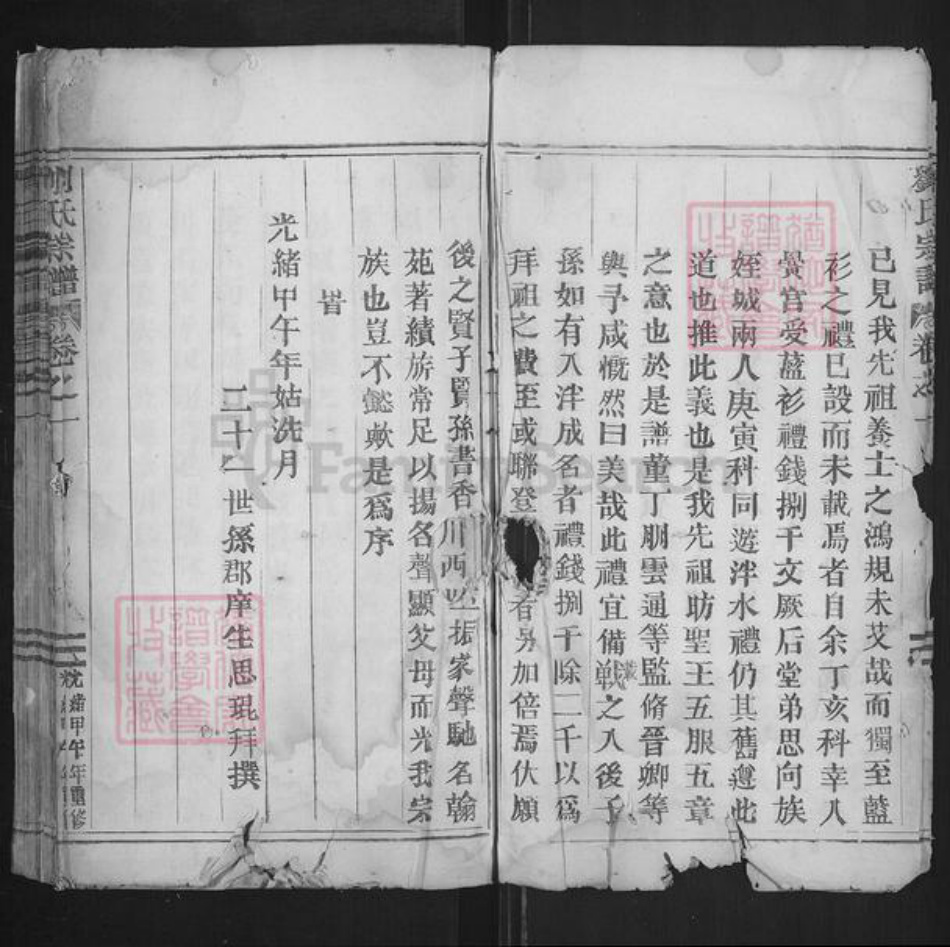 劉氏宗譜 卷之一
已見我先祖養士之鴻規未艾哉而獨至藍
衫之禮已設而未載焉者自余丁亥科幸入
黌宮受藍衫禮錢捌千文厥后堂弟思向族
姪城兩人庚寅科同遊泮水禮仍其舊遵此
道也推此義也是我先祖昉聖王五服五章
之意也於是譜董丁朋雲通等監脩晉卿等
與予咸慨然曰美哉此禮宜備戦載之入後子
孫如有入泮成名者禮錢捌千除二千以爲
拜祖之費至或聯登者另加倍焉伏願
後之賢子賢孫書香川西振家聲馳名翰
苑著績旂常足以揚名聲顯父母而光我宗
族也豈不懿歟是爲序
旹
光緒甲午年姑洗月
三十一世孫郡庠生思琨拜撰
劉氏宗譜 卷之一
光緒甲午年重修
FamilySearch